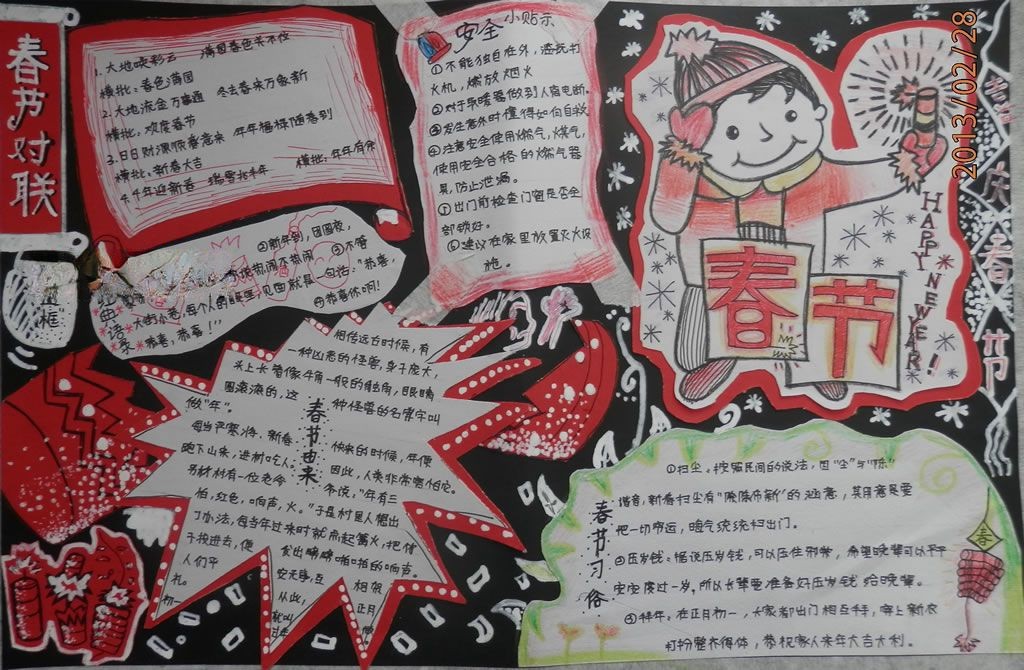 春节对联
1.大地映彩云 满园春色关不住
横批:春色满园
2.大地流金万事通 冬去春来万象新
横批:欢度春节
3.日日财源顺意来 年年福禄随春到
横批:新春大吉
4.年年迎新春 瑞雪兆丰年 横批:年年有余
安全小贴示
①不能独自在外,游玩打
火机,燃放烟火
②对于取暖器做到人离电断。
③发生意外时懂得如何自救
④注意安全使用燃气,煤气,
使用安全合格的燃气器
具,防止泄漏。
⑤出门前检查门窗是否全
部锁好。
⑥建议在家里放置灭火设
施。
2013/02/28
HAPPY NEW YEAR!
春节
庆春节
②新年到,团圆夜,
③不管
大街小巷,每个人的嘴里,见面就是一句话:“恭喜,
恭喜,恭喜!!
④恭喜你啊!
春节由来
相传远古时候,有
一种凶恶的怪兽,身子庞大,
头上长着像牛角一般的触角,眼睛
圆滚滚的,这种怪兽的名字叫
做“年”。
每当严寒将,新春快来的时候,年便
跑下山来,进村吃人。因此,人类非常害怕它。
爷说,“年有三
怕,红色,响声,火。”于是村里人想出
了办法,每当年过来时就点起篝火,把竹
子投进去,便发出噼噼啪啪的响声。
人们平安无事,互相祝
礼。从此,正月
初一就叫
过年
春节习俗
①扫尘。按照民间的说法,因“尘”与“陈”
谐音,新春扫尘有“除陈布新”的涵意,其用意是要
把一切穷运,晦气统统扫出门。
②压岁钱:据说压岁钱,可以压住邪祟,希望晚辈可以平平
安安度过一岁,所以长辈要准备好压岁钱给晚辈。
③拜年。在正月初一,大家都出门相互拜,穿上新衣
打扮整齐得体,恭祝家人来年大吉大利。
春